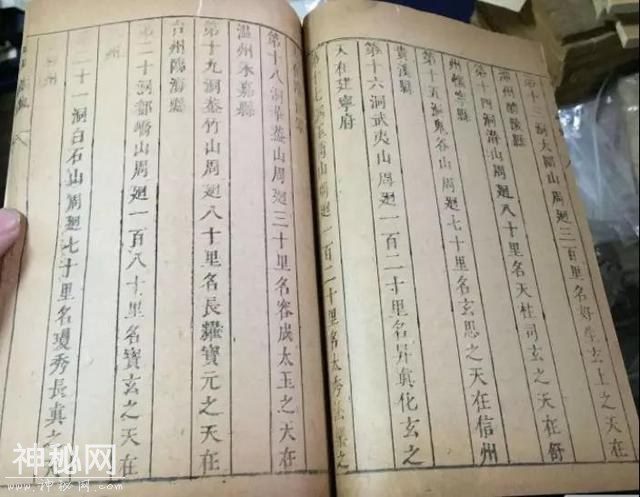 第十三洞大山周廻三百里名好生玄上之天在
潭州醴陵縣
第十四洞潛山周廻八十里名天柱司玄之天在舒
州懷寧縣
第十五洞鬼谷山周廻七十里名玄思之天在信州
貴溪縣
第十六洞武夷山周廻一百二十里名昇眞化玄之
天在建寧府
第十七洞玉笥山周廻一百二十里名太秀法樂之
第十八洞華蓋山周廻三十里名容成太玉之天在
溫州永嘉縣
第十九洞蓋竹山周廻八十里名長耀寶元之天在
台州臨海縣
第二十洞都嶠山周廻一百八十里名寶玄之天在
州
二十一洞白石山周廻七十里名瓊秀長眞之天
州
神秘网